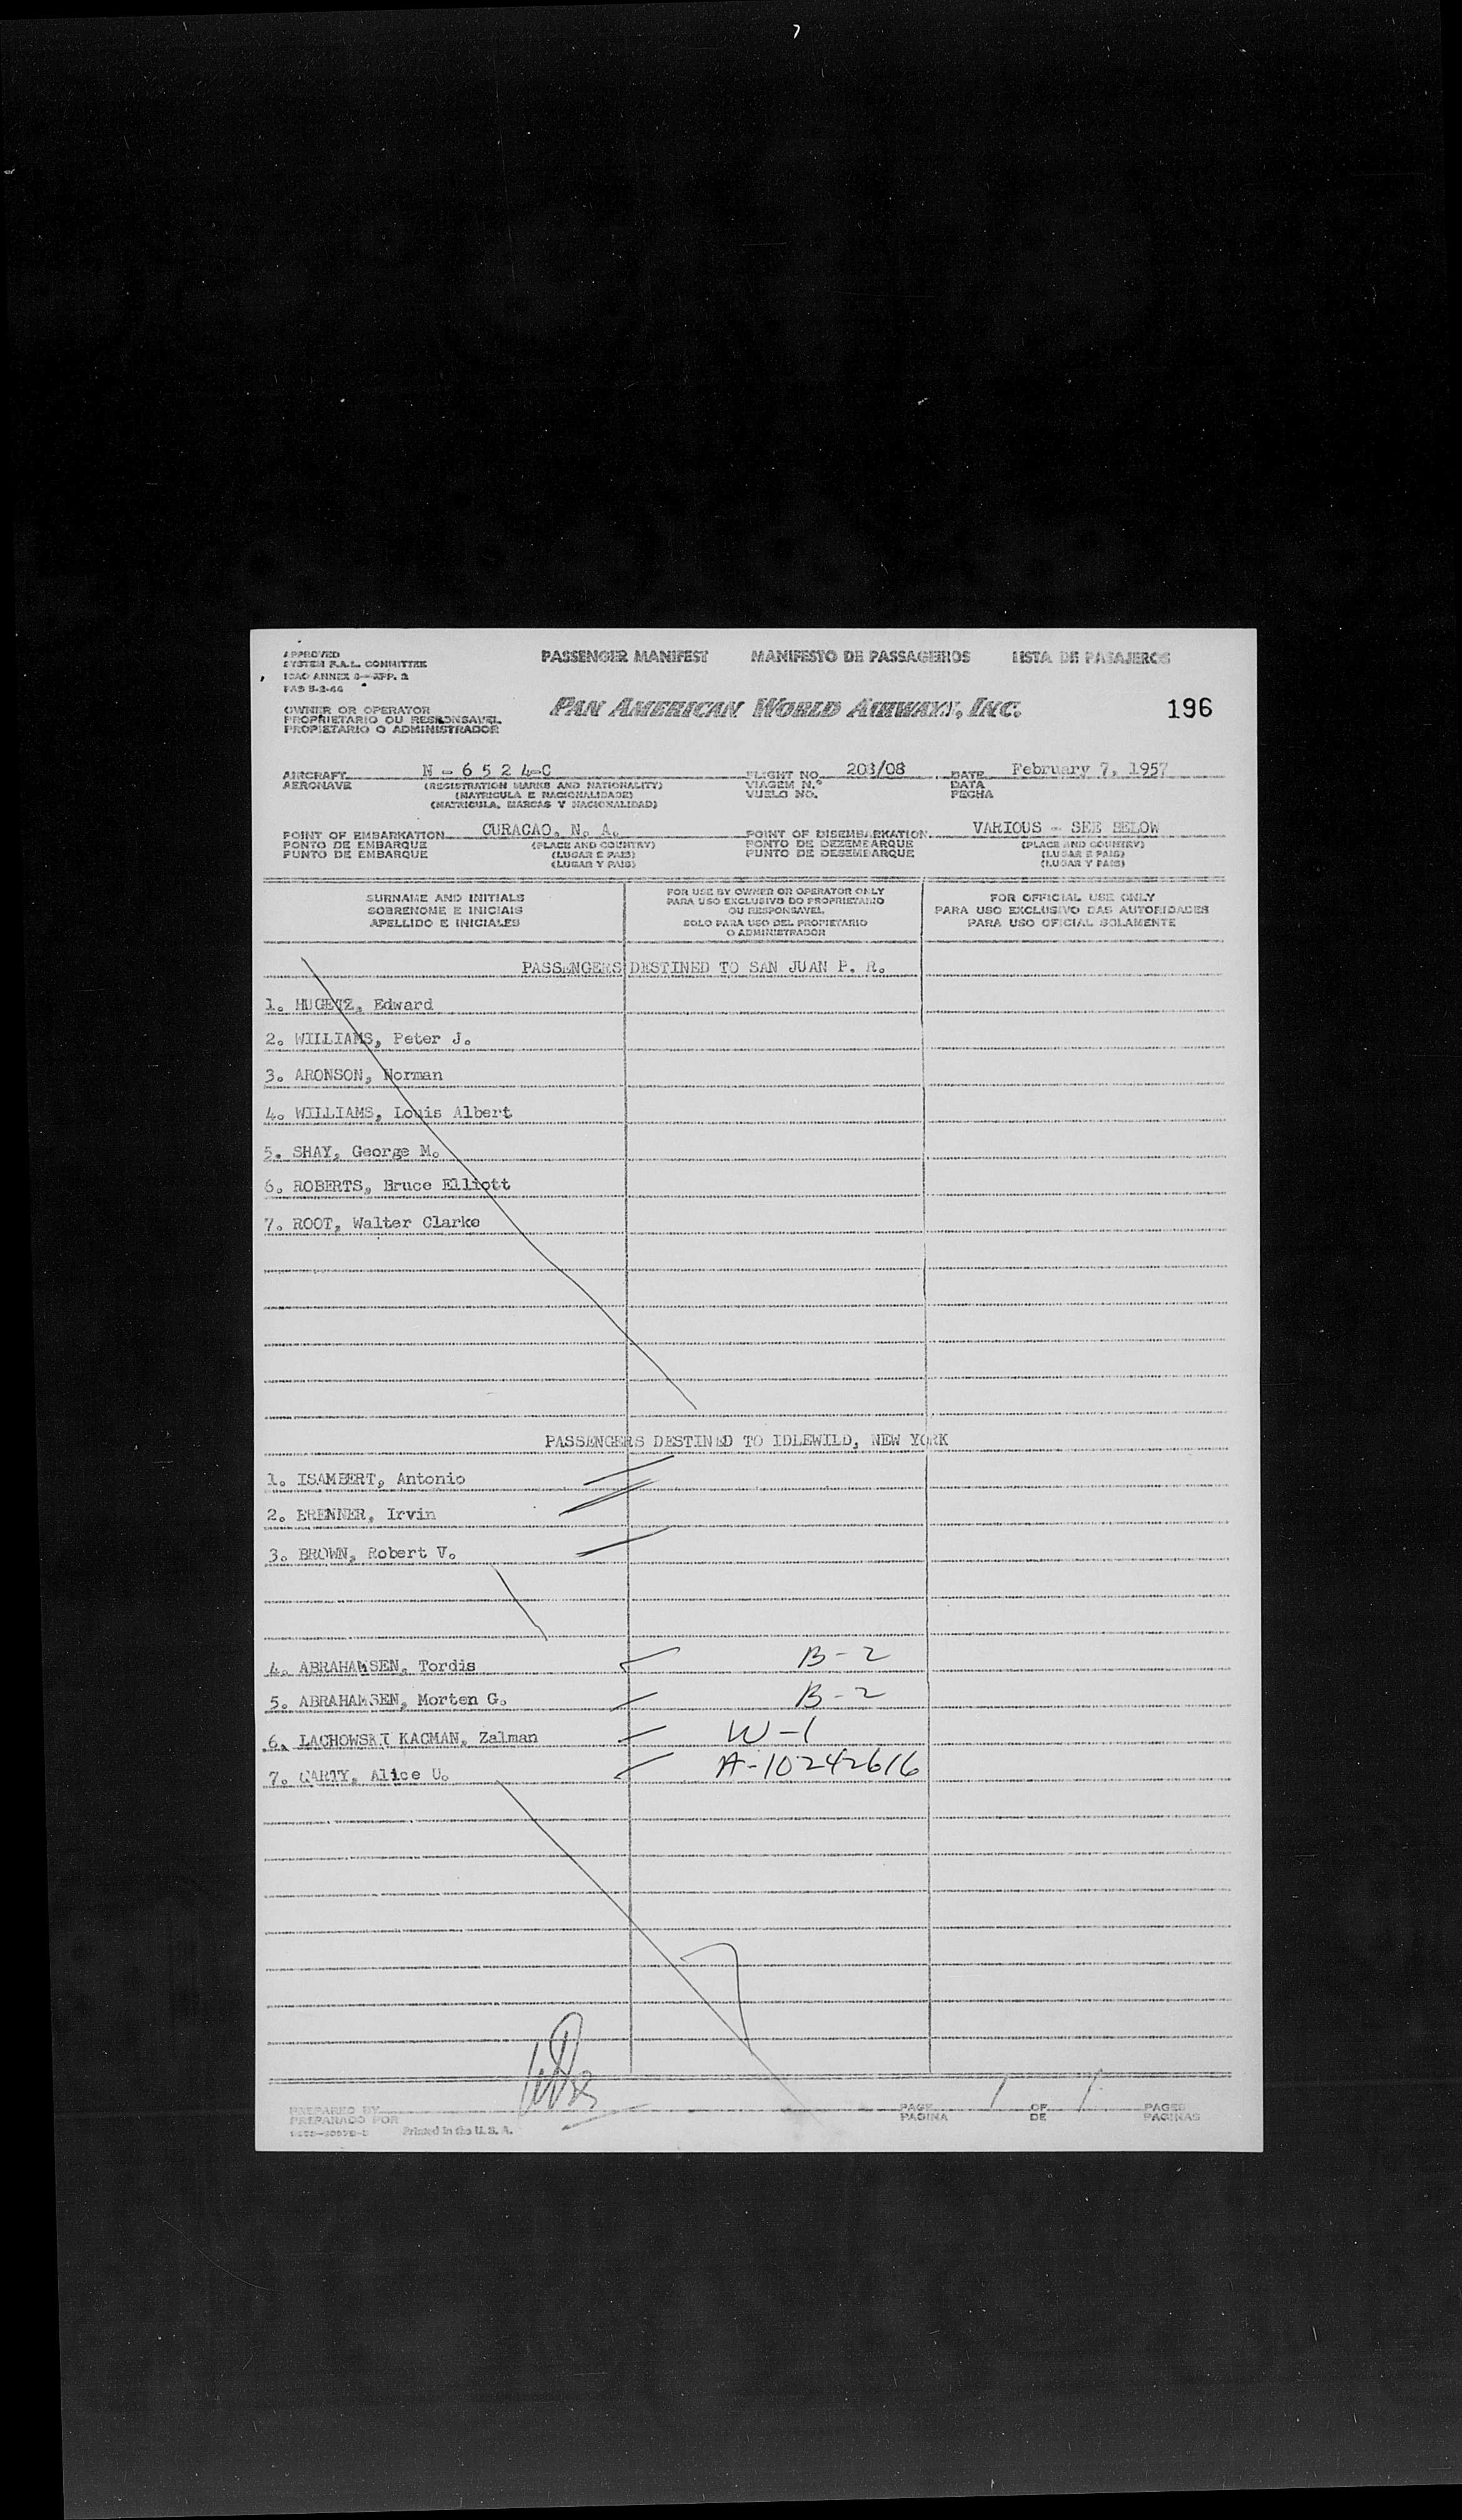 APPROVED
SYSTEM F.A.L. COMMITTEE
ICAO ANNEX 9—APP. 3
PASSENGER MANIFEST MANIFESTO DE PASSAGEIROS LISTA DE PASAJEROS
OWNER OR OPERATOR
PROPRIETARIO OU RESPONSAVEL
PROPIETARIO O ADMINISTRADOR
PAN AMERICAN WORLD AIRWAYS, INC.
196
AIRCRAFT N - 6 5 2 4-C FLIGHT NO. 203/08 DATE February 7, 1957
AERONAVE (REGISTRATION MARKS AND NATIONALITY) VIAGEM N.º DATA
(MATRICULA E NACIONALIDADE) VUELO NO. FECHA
(MATRICULA, MARCAS Y NACIONALIDAD)
POINT OF EMBARKATION CURACAO, N. A. POINT OF DISEMBARKATION VARIOUS - SEE BELOW
PONTO DE EMBARQUE (PLACE AND COUNTRY) PONTO DE DEZEMBARQUE (PLACE AND COUNTRY)
PUNTO DE EMBARQUE (LUGAR E PAIS) PUNTO DE DESEMBARQUE (LUGAR E PAIS)
(LUGAR Y PAIS) (LUGAR Y PAIS)
SURNAME AND INITIALS
SOBRENOME E INICIAIS
APELLIDO E INICIALES
FOR USE BY OWNER OR OPERATOR ONLY
PARA USO EXCLUSIVO DO PROPRIETARIO
OU RESPONSAVEL
SOLO PARA USO DEL PROPIETARIO
O ADMINISTRADOR
FOR OFFICIAL USE ONLY
PARA USO EXCLUSIVO DAS AUTORIDADES
PARA USO OFICIAL SOLAMENTE
PASSENGERS DESTINED TO SAN JUAN P. R.
1. HUGETZ, Edward
2. WILLIAMS, Peter J.
3. ARONSON, Norman
4. WILLIAMS, Louis Albert
5. SHAY, George M.
6. ROBERTS, Bruce Elliott
7. ROOT, Walter Clarke
PASSENGERS DESTINED TO IDLEWILD, NEW YORK
1. ISAMBERT, Antonio
2. BRENNER, Irvin
3. BROWN, Robert V.
4. ABRAHAMSEN, Tordis B-2
5. ABRAHAMSEN, Morten G. B-2
6. LACHOWSKI KACMAN, Zalman W-1
7. CARTY, Alice U. A-10242616
PREPARED BY PAGE 1 OF 1 PAGES
PREPARADO POR PAGINA DE PAGINAS
Printed in the U. S. A.